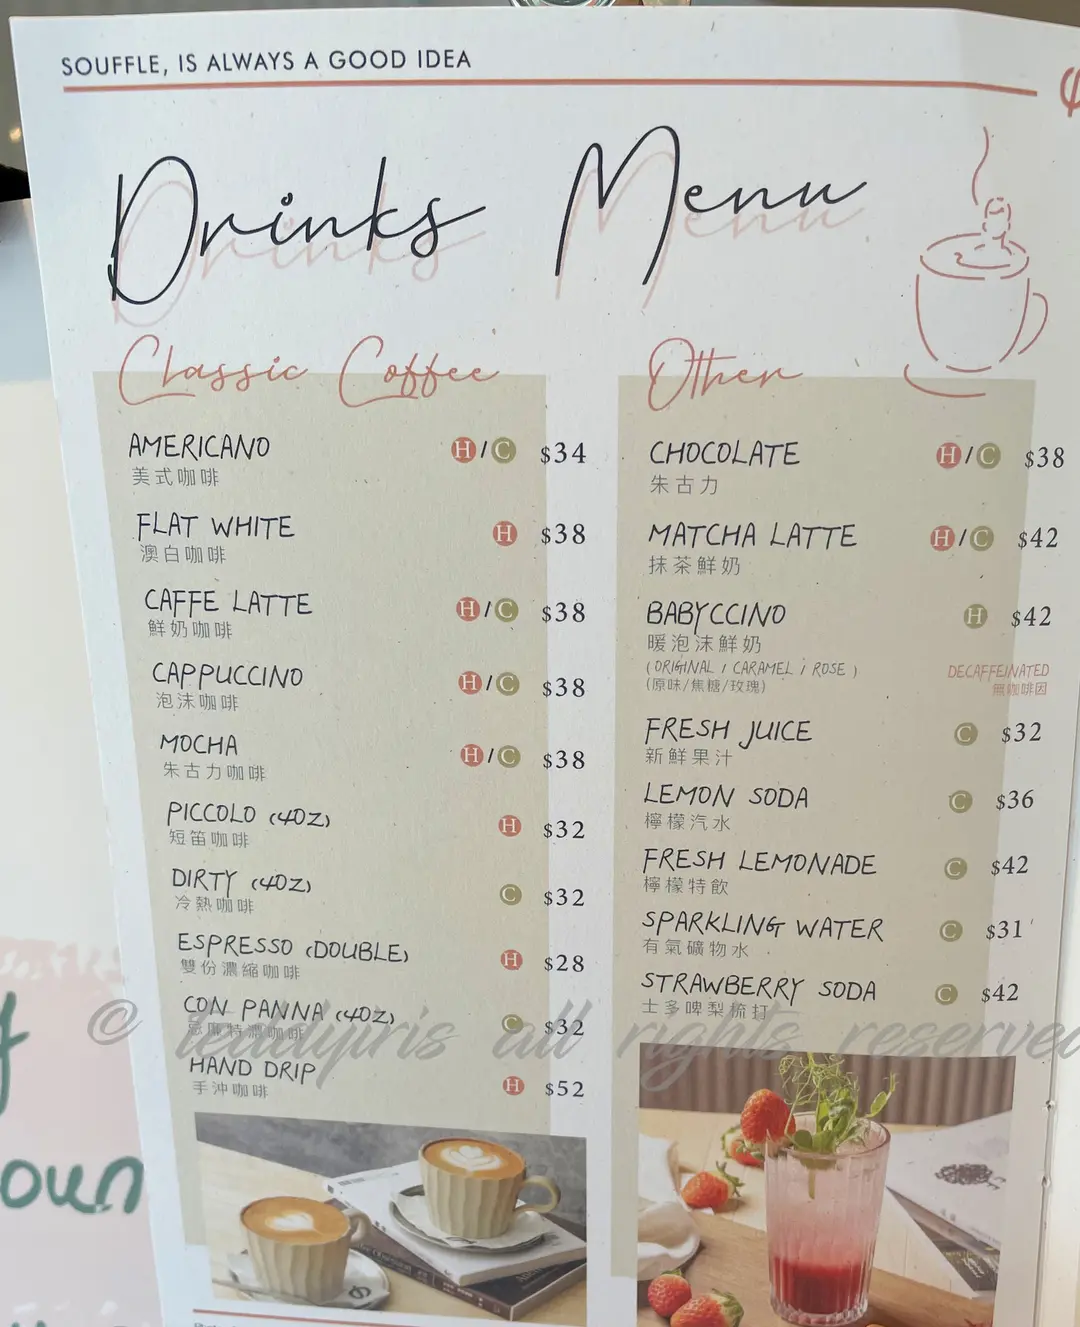 SOUFFLE, IS ALWAYS A GOOD IDEA
Drinks Menu
Classic Coffee
AMERICANO H/C $34
美式咖啡
FLAT WHITE H $38
澳白咖啡
CAFFE LATTE H/C $38
鮮奶咖啡
CAPPUCCINO H/C $38
泡沫咖啡
MOCHA H/C $38
朱古力咖啡
PICCOLO (4OZ) H $32
短笛咖啡
DIRTY (4OZ) C $32
冷熱咖啡
ESPRESSO (DOUBLE) H $28
雙份濃縮咖啡
CON PANNA (4OZ) C $32
特濃咖啡
HAND DRIP H $52
手沖咖啡
Other
CHOCOLATE H/C $38
朱古力
MATCHA LATTE H/C $42
抹茶鮮奶
BABYCCINO H $42
暖泡沫鮮奶
(ORIGINAL / CARAMEL / ROSE) DECAFFEINATED
(原味/焦糖/玫瑰) 無咖啡因
FRESH JUICE C $32
新鮮果汁
LEMON SODA C $36
檸檬汽水
FRESH LEMONADE C $42
檸檬特飲
SPARKLING WATER C $31
有氣礦物水
STRAWBERRY SODA C $42
士多啤梨梳打
© all rights reserved
oun